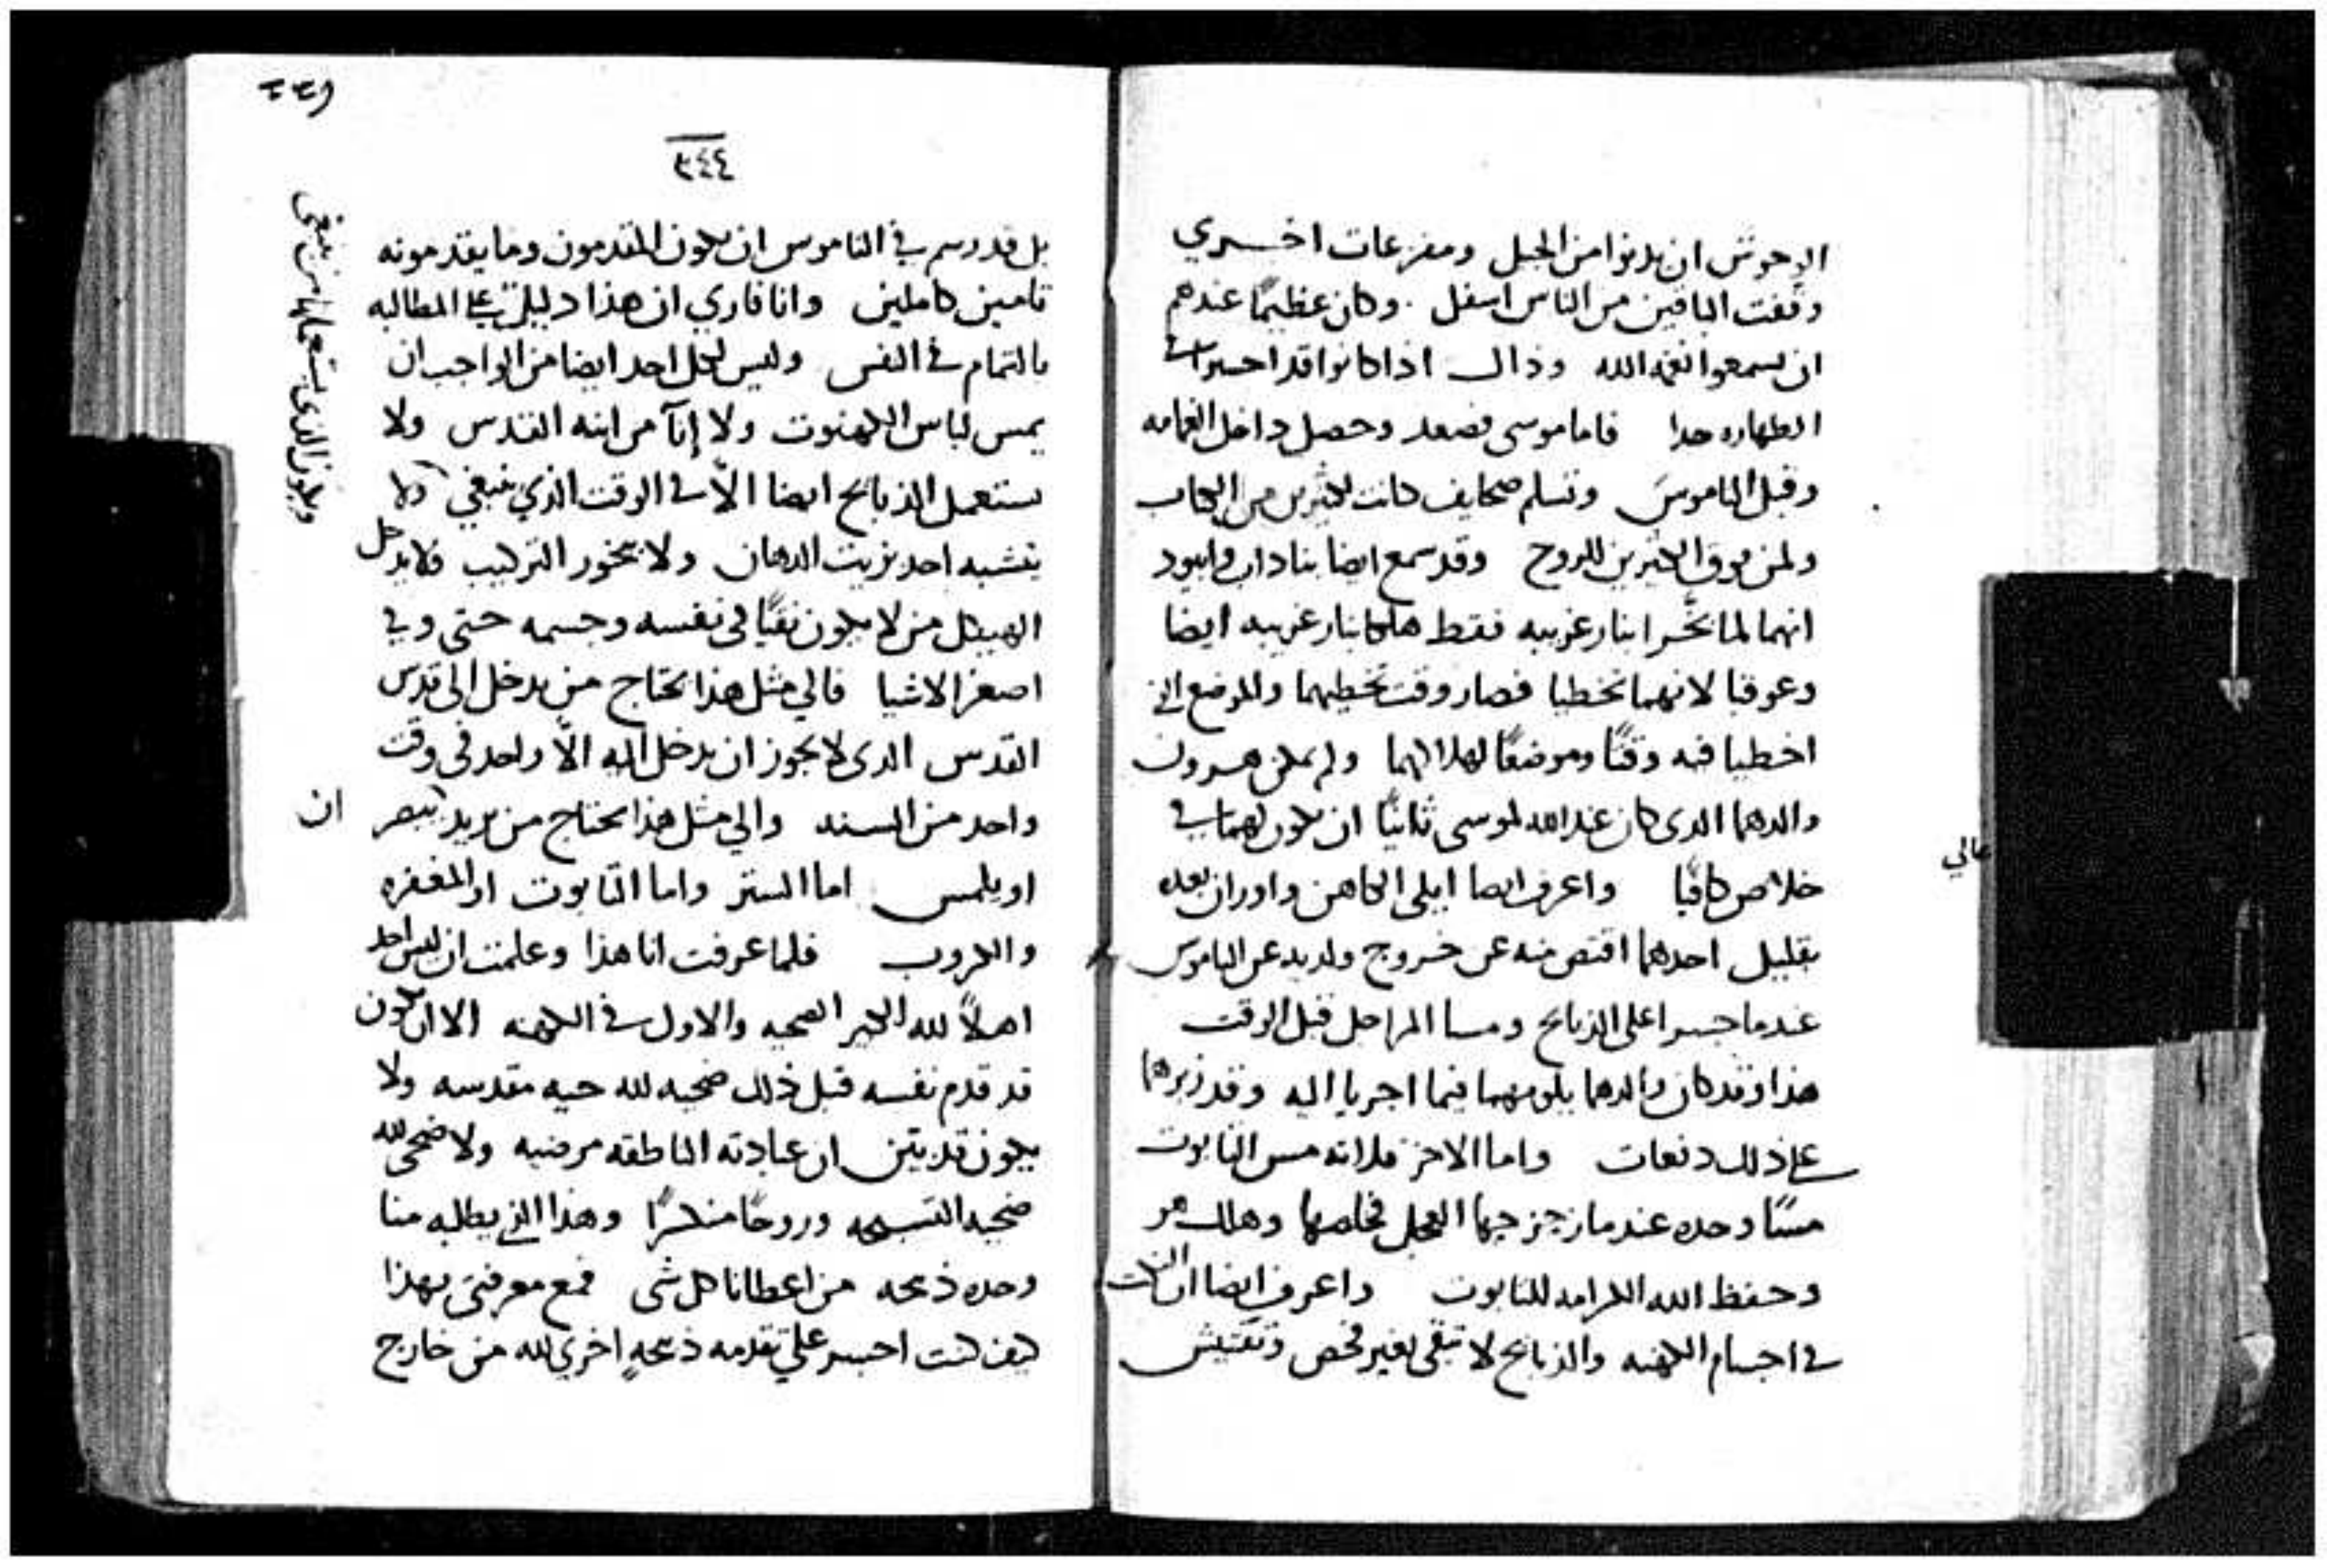 الوحوش ان يدنوا من الجبل ومفزعات اخري
وقفت الباقين من الناس اسفل وكان عظيمًا عندهم
ان يسمعوا نغمة الله وذاك اذا كانوا قد احسنوا في
الطهاره جدا فاما موسى فصعد وحصل داخل الغمامه
وقبل الناموس وتسلم صحايف كانت لكثيرين من الكتاب
ولمن فوق الكثيرين للروح وقد سمع ايضا بناداب وابيود
انهما لما بخَّرا بنار غريبه فقط هلكا بنار غريبه ايضا
وعوقبا لانهما تخطيا فصار وقت تخطيهما والموضع الذي
اخطيا فيه وقتًا وموضعًا لهلاكهما ولم يمكن هرون
والدهما الذي كان عند الله لموسى ثانيًا ان يكون لهما في
خلاص كافيًا واعرف ايضا ايلي الكاهن واوزان بعده
بقليل احدهما اقتص منه عن خروج ولديه عن الناموس
عندما جسرا على الذبايح ومسا المراجل قبل الوقت
هذا وقد كان والدهما يلومهما فيما اجريا اليه وقد زبرهما
على ذلك دفعات واما الاخر فلانه مس التابوت
مسًا وحده عندما زحزحها العجل فخلصها وهلك هو
وحفظ الله الكرامه للتابوت واعرف ايضا ان
في اجسام الكهنه والذبايح لا تبقى بغير فحص وتفتيش
عالي
٣٤٤
بل قد رسم في الناموس ان يكون المقدمون وما يقدمونه
تامين كاملين وانا فاري ان هذا دليل على المطالبه
بالتمام في النفس وليس لكل احد ايضا من الواجب ان
يمس لباس الكهنوت ولا إنآ من انيه القدس ولا
يستعمل الذبايح ايضا الّا في الوقت الذي ينبغي ولا
يتشبه احد بزيت الدهان ولا ببخور التركيب فلا يدخل
الهيكل من لا يكون نقيًا في نفسه وجسمه حتى وفي
اصغر الاشيا فالي مثل هذا يحتاج من يدخل الى قدس
القدس الذي لا يجوز ان يدخل اليه الّا واحد في وقت
واحد من السنه والي مثل هذا يحتاج من يريد يبصر
او يلمس اما الستر واما التابوت او المغفره
والكروب فلما عرفت انا هذا وعلمت ان ليس احد
اهلًا لله الكبير الضحيه والاول في الكهنه الا ان يكون
قد قدم نفسه قبل ذلك ضحيه لله حيه مقدسه ولا
يكون قد يتقن ان عبادته الناطقه مرضيه ولا ضحى لله
ضحيه التسبحه وروحًا منكسرًا وهذا الذي يطلبه منا
وحده ذبيحه من اعطانا كل شي فمع معرفتي بهذا
كيف كنت اجسر على تقدمه ذبيحهٍ اخري لله من خارج
ويكون الذي يستعملها من ينبغي
ان